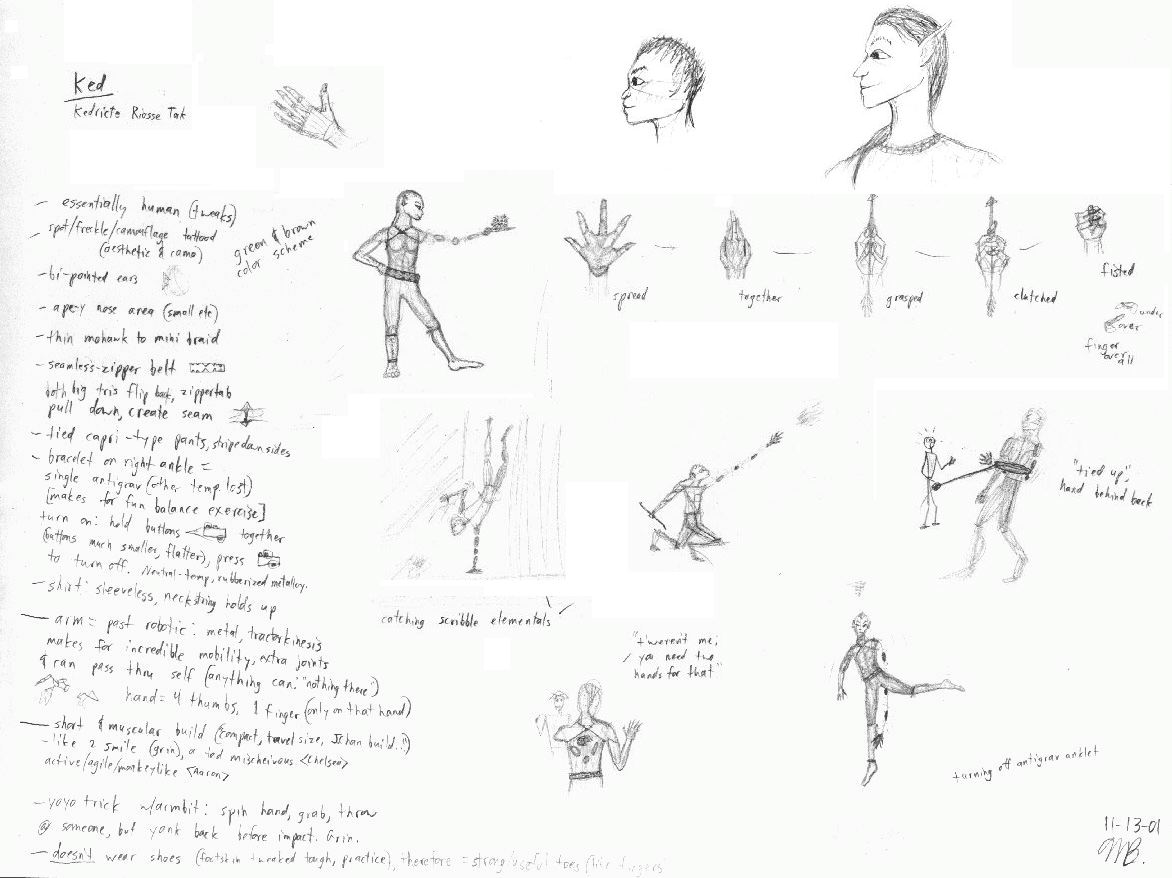 Ked
Kedricto Riosse Tak
– essentially human (tweaks)
spot/freckle/camouflage tattood
(aesthetic & camo)
green & brown
color scheme
– bi-pointed ears
– ape-y nose area (small etc)
– thin mohawk to mini braid
– seamless-zipper belt
both big tris flip back, zippertab
pull down, create seam
– tied capri-type pants, stripe down sides
– bracelet on right ankle =
single antigrav (other temp. lost)
[makes for fun balance exercise]
turn on: hold buttons together
(buttons much smaller, flatter), press
to turn off. Neutral-temp, rubberized metalloy.
– shirt: sleeveless, neckstring holds up
– arm = post robotic: metal, tractorkinesis
makes for incredible mobility, extra joints
& can pass thru self (anything can: "nothing there")
hand = 4 thumbs, 1 finger (only on that hand)
– short & muscular build (compact, travel size, build..!)
– like 2 smile (grin), a tad mischeivous <Chelsea>
active/agile/monkeylike <Aaron>
– yoyo trick w/armbit: spin hand, grab, throw
@ someone, but yank back before impact. Grin.
– doesn't wear shoes (footskin tweaked tough, practice), therefore = strong useful toes (like fingers
spread
together
grasped
clutched
fisted
under
over
finger
over
all
catching scribble elementals
"tied up",
hand behind back
"t'weren't me;
you need two
hands for that"
turning off antigrav anklet
11-13-01
MB.